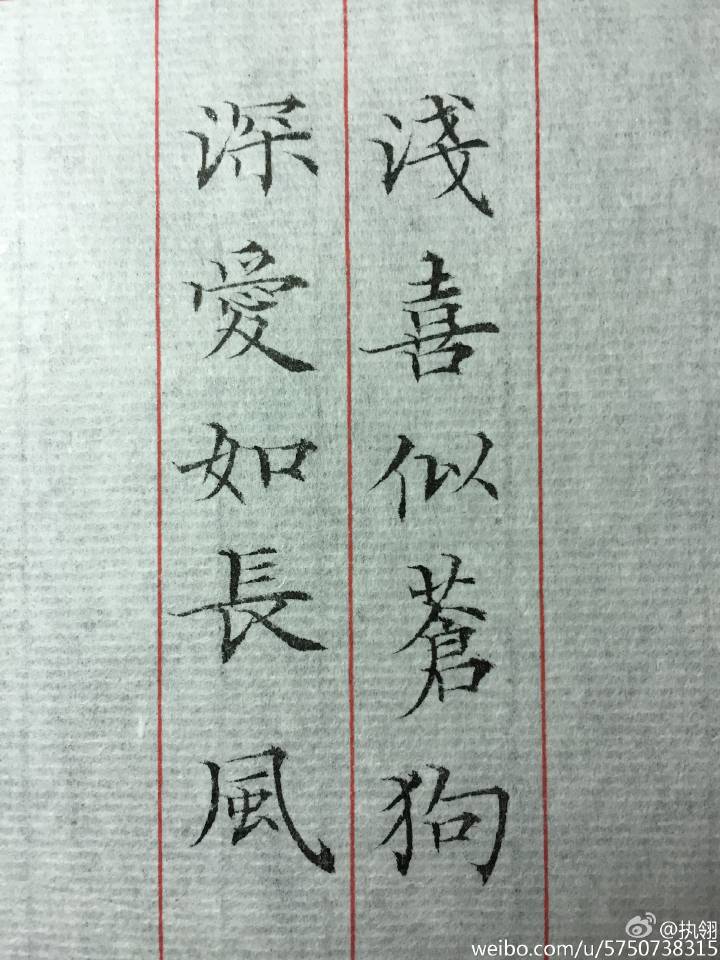 淺喜似蒼狗
深愛如長風
@执翎
weibo.com/u/5750738315